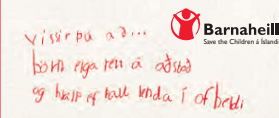 Barnaheill
Save the Children á Íslandi
vissir þú að...
börn eiga rétt á aðstoð
og hjálp ef þau lenda í ofbeldi